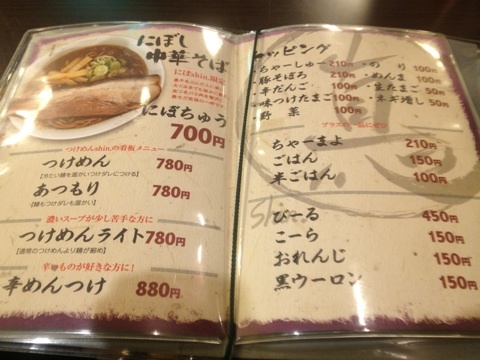 にぼし
中華そば
にぼshin.限定
にぼちゅう
700円
つけめんshin.の看板メニュー
つけめん 780円
【冷たい麺を温かいつけダレにつける】
あつもり 780円
【麺もつけダレも温かい】
濃いスープが少し苦手な方に
つけめんライト 780円
【通常のつけめんより麺が細め】
辛いものが好きな方に!
辛めんつけ 880円
トッピング
ちゃーしゅー 210円 ・のり 100円
豚そぼろ 210円 ・めんま 100円
辛だんご 100円 ・生たまご 50円
味つけたまご 100円 ・ネギ増し 50円
野菜 100円
プラスの一品にぜひ
ちゃーまよ 210円
ごはん 150円
半ごはん 100円
びーる 450円
こーら 150円
おれんじ 150円
黒ウーロン 150円